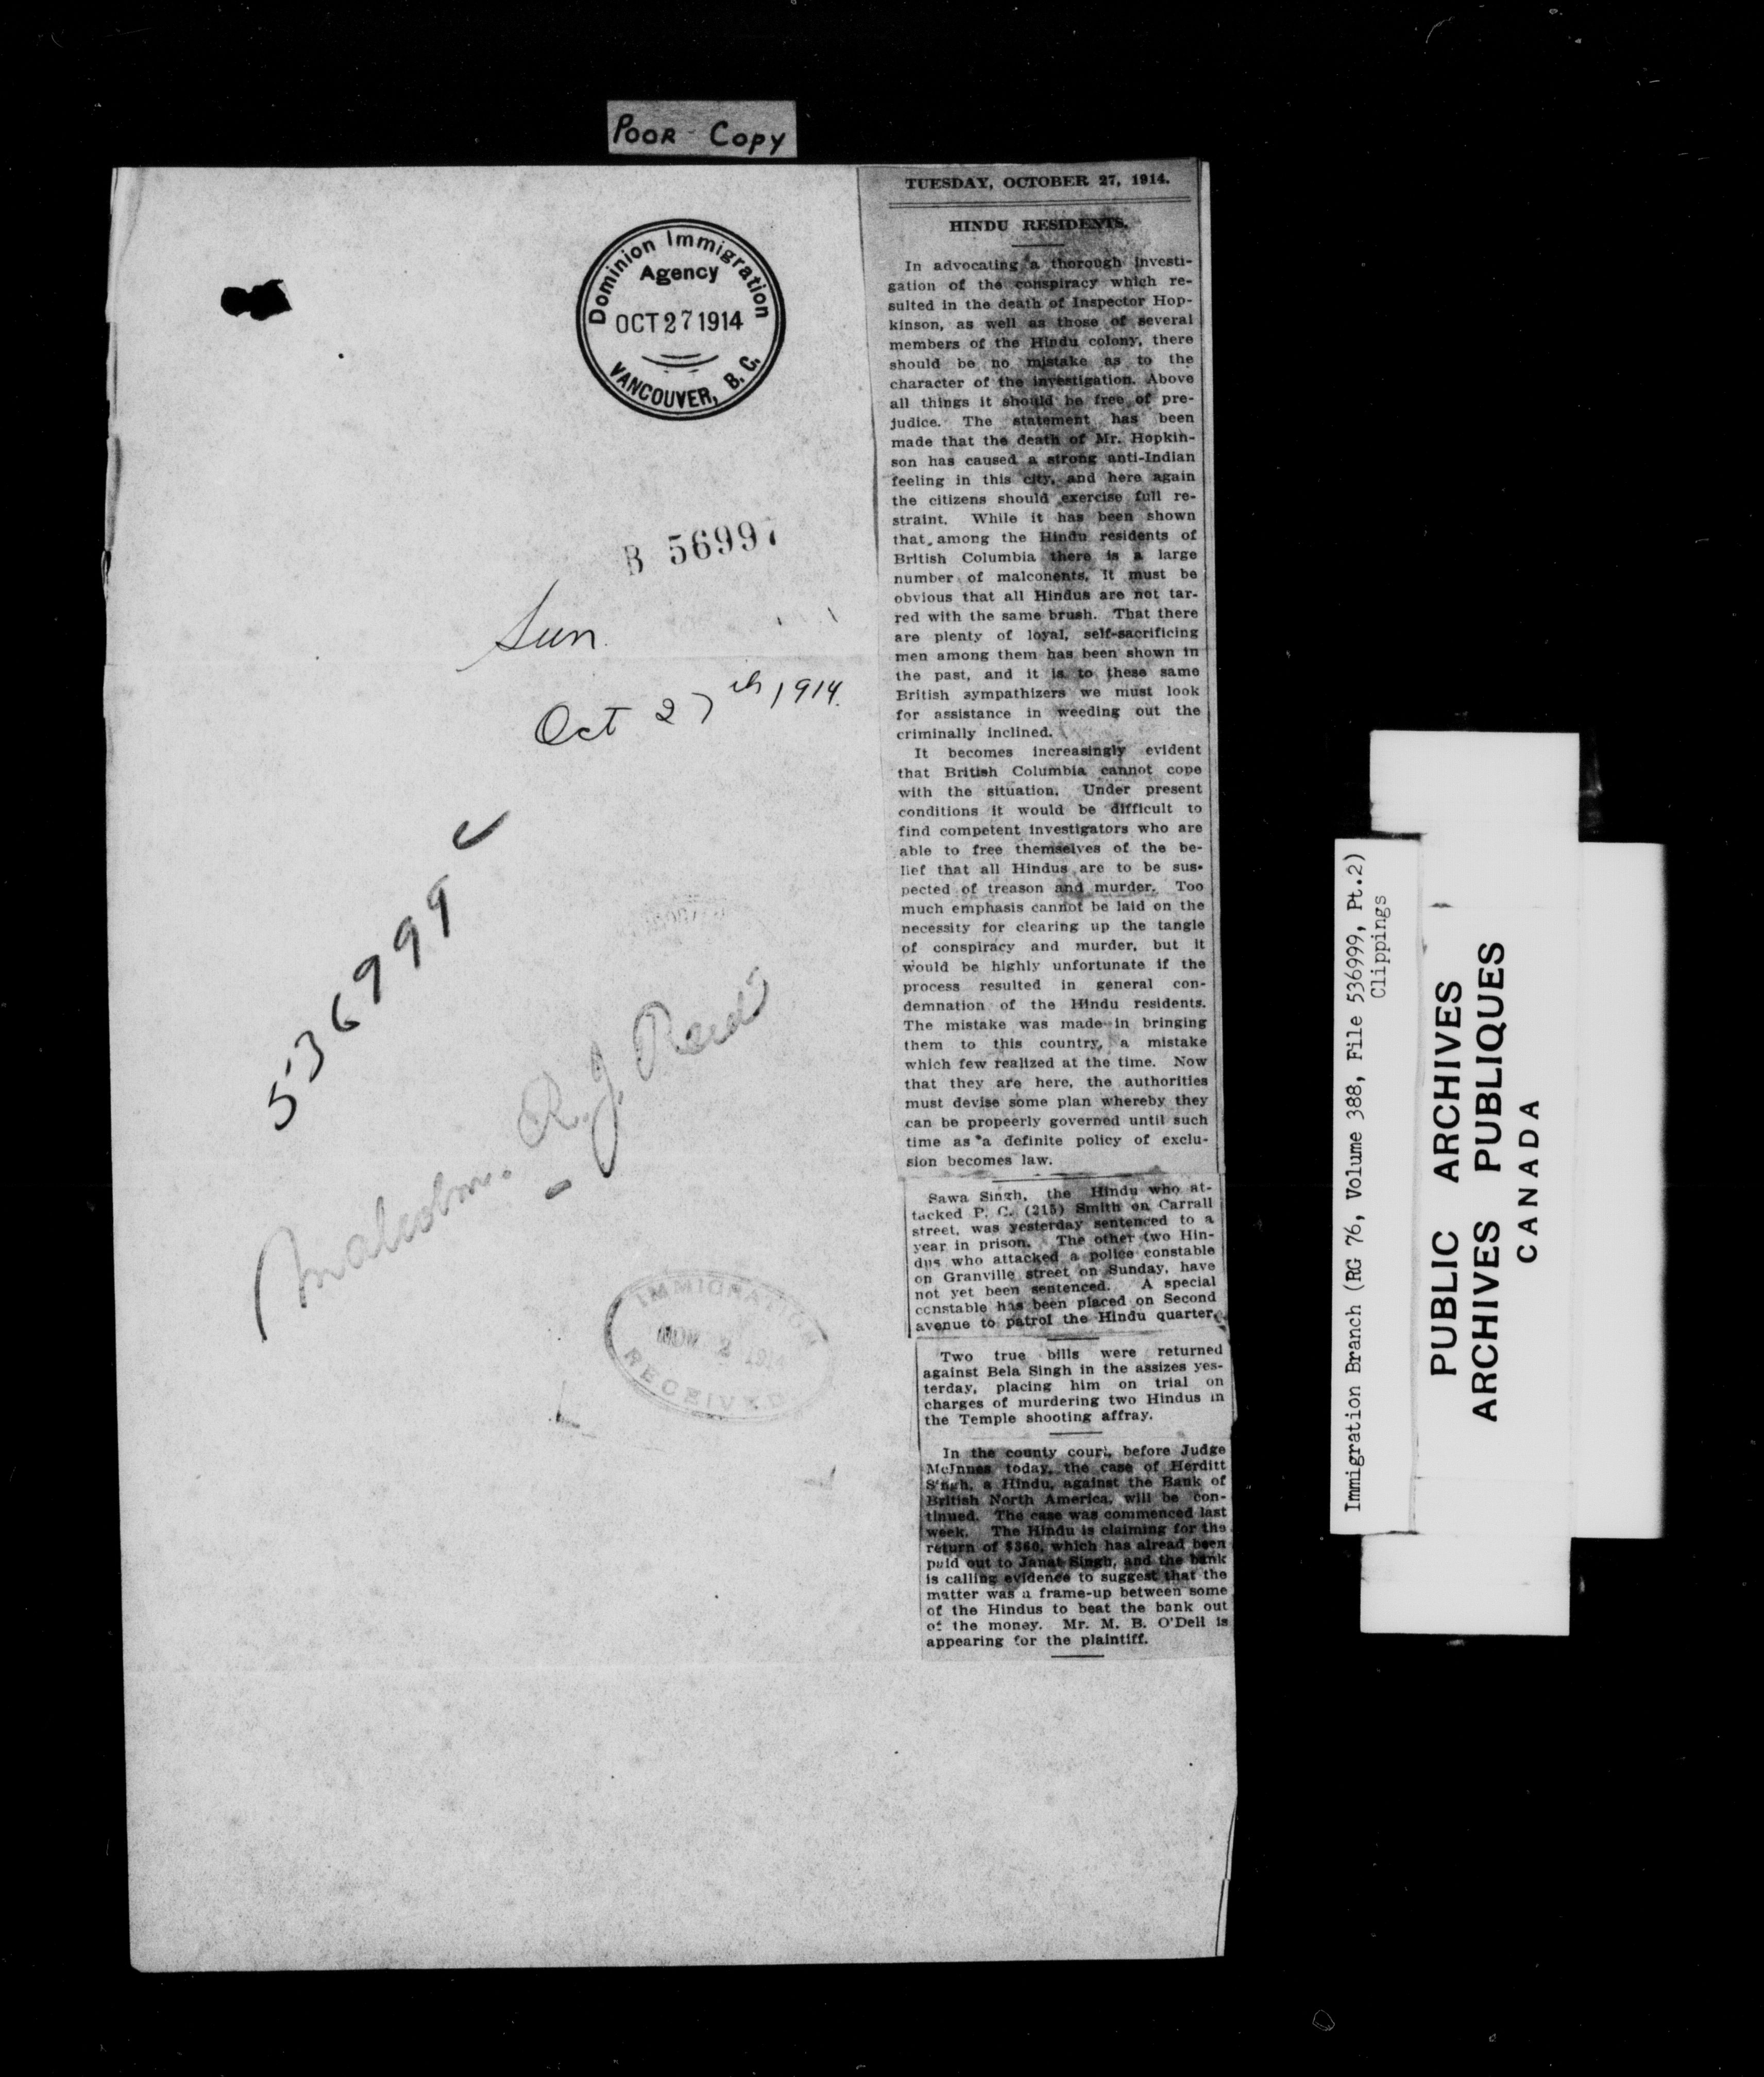 POOR COPY
Dominion Immigration
Agency
OCT 27 1914
VANCOUVER, B. C.
B 56997
Sun.
Oct 27th 1914.
536999
Malcolm R. J. Reid
IMMIGRATION
NOV 2 1914
RECEIVED
TUESDAY, OCTOBER 27, 1914.
HINDU RESIDENTS.
In advocating a thorough investi-
gation of the conspiracy which re-
sulted in the death of Inspector Hop-
kinson, as well as those of several
members of the Hindu colony, there
should be no mistake as to the
character of the investigation. Above
all things it should be free of pre-
judice. The statement has been
made that the death of Mr. Hopkin-
son has caused a strong anti-Indian
feeling in this city, and here again
the citizens should exercise full re-
straint. While it has been shown
that among the Hindu residents of
British Columbia there is a large
number of malconents, it must be
obvious that all Hindus are not tar-
red with the same brush. That there
are plenty of loyal, self-sacrificing
men among them has been shown in
the past, and it is to these same
British sympathizers we must look
for assistance in weeding out the
criminally inclined.
It becomes increasingly evident
that British Columbia cannot cope
with the situation. Under present
conditions it would be difficult to
find competent investigators who are
able to free themselves of the be-
lief that all Hindus are to be sus-
pected of treason and murder. Too
much emphasis cannot be laid on the
necessity for clearing up the tangle
of conspiracy and murder, but it
would be highly unfortunate if the
process resulted in general con-
demnation of the Hindu residents.
The mistake was made in bringing
them to this country, a mistake
which few realized at the time. Now
that they are here, the authorities
must devise some plan whereby they
can be propeerly governed until such
time as a definite policy of exclu-
sion becomes law.
Sawa Singh, the Hindu who at-
tacked P. C. (215) Smith on Carrall
street, was yesterday sentenced to a
year in prison. The other two Hin-
dus who attacked a police constable
on Granville street on Sunday, have
not yet been sentenced. A special
constable has been placed on Second
avenue to patrol the Hindu quarter.
Two true bills were returned
against Bela Singh in the assizes yes-
terday, placing him on trial on
charges of murdering two Hindus in
the Temple shooting affray.
In the county court, before Judge
McInnes today, the case of Herditt
Singh, a Hindu, against the Bank of
British North America, will be con-
tinued. The case was commenced last
week. The Hindu is claiming for the
return of $360, which has alread been
paid out to Janat Singh, and the bank
is calling evidence to suggest that the
matter was a frame-up between some
of the Hindus to beat the bank out
of the money. Mr. M. B. O'Dell is
appearing for the plaintiff.
Immigration Branch (RG 76, Volume 388, File 536999, Pt.2)
Clippings
PUBLIC ARCHIVES
ARCHIVES PUBLIQUES
CANADA